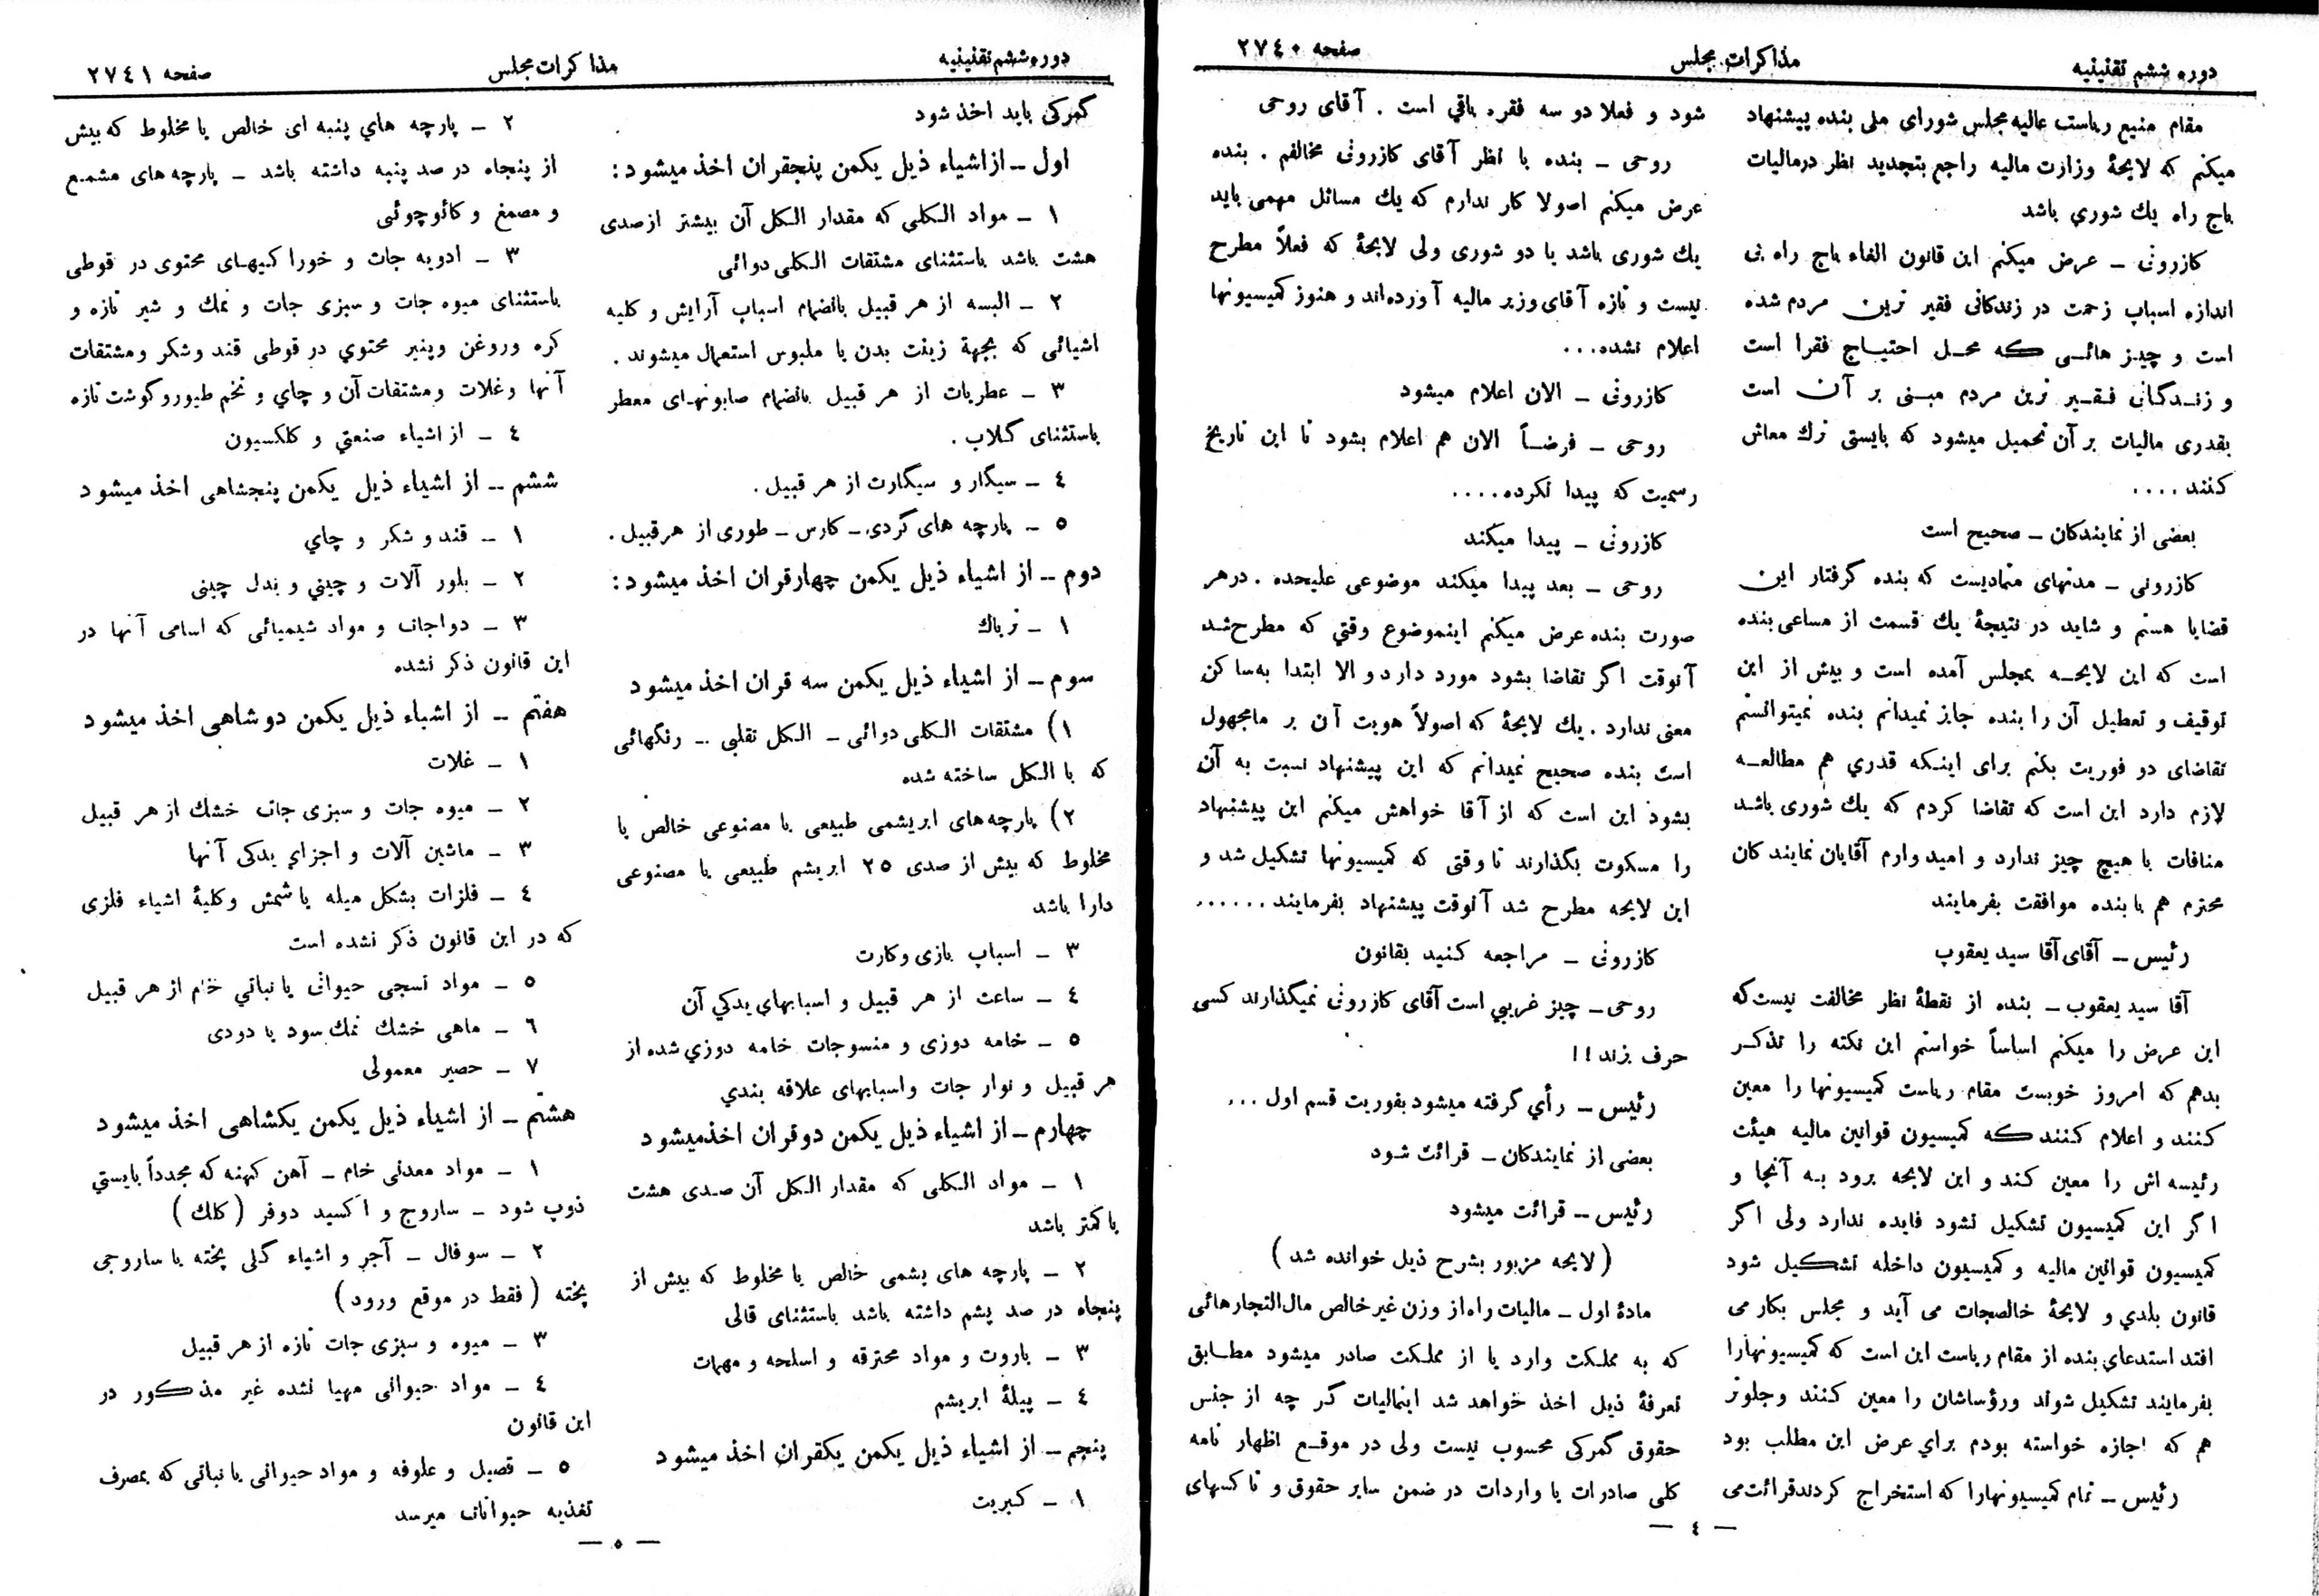 دوره ششم تقنینیه
مذاکرات مجلس
صفحه ۲۷۴۰
مقام منیع ریاست عالیه مجلس شورای ملی بنده پیشنهاد
میکنم که لایحهٔ وزارت مالیه راجع بتجدید نظر درمالیات
باج راه یك شوری باشد
کازرونی ـ عرض میکنم این قانون الغاء باج راه بی
اندازه اسباب زحمت در زندکانی فقیر ترین مردم شده
است و چیز هائی که محل احتیاج فقرا است
و زندگانی فقیر ترین مردم مبنی بر آن است
بقدری مالیات بر آن تحمیل میشود که بایستی ترك معاش
کنند ....
بعضی از نمایندکان ـ صحیح است
کازرونی ـ مدتهای متمادیست که بنده گرفتار این
قضایا هستم و شاید در نتیجهٔ یك قسمت از مساعی بنده
است که این لایحه بمجلس آمده است و بیش از این
توقیف و تعطیل آن را بنده جایز نمیدانم بنده نمیتوانستم
تقاضای دو فوریت بکنم برای اینکه قدری هم مطالعه
لازم دارد این است که تقاضا کردم که یك شوری باشد
منافات با هیچ چیز ندارد و امید وارم آقایان نمایندکان
محترم هم با بنده موافقت بفرمایند
رئیس ـ آقای آقا سید یعقوب
آقا سید یعقوب ـ بنده از نقطهٔ نظر مخالفت نیست که
این عرض را میکنم اساساً خواستم این نکته را تذکر
بدهم که امروز خوبست مقام ریاست کمیسیونها را معین
کنند و اعلام کنند که کمیسیون قوانین مالیه هیئت
رئیسه اش را معین کند و این لایحه برود به آنجا و
اگر این کمیسیون تشکیل نشود فایده ندارد ولی اگر
کمیسیون قوانین مالیه و کمیسیون داخله تشکیل شود
قانون بلدی و لایحهٔ خالصجات می آید و مجلس بکار می
افتد استدعای بنده از مقام ریاست این است که کمیسیونهارا
بفرمایند تشکیل شوند ورؤساشان را معین کنند وجلوتر
هم که اجازه خواسته بودم برای عرض این مطلب بود
رئیس ـ تمام کمیسیونهارا که استخراج کردند قرائت می
شود و فعلا دو سه فقره باقی است . آقای روحی
روحی ـ بنده با نظر آقای کازرونی مخالفم . بنده
عرض میکنم اصولا کار ندارم که یك مسائل مهمی باید
یك شوری باشد یا دو شوری ولی لایحهٔ که فعلاً مطرح
نیست و تازه آقای وزیر مالیه آورده‌اند و هنوز کمیسیونها
اعلام نشده...
کازرونی ـ الان اعلام میشود
روحی ـ فرضاً الان هم اعلام بشود تا این تاریخ
رسمیت که پیدا نکرده....
کازرونی ـ پیدا میکند
روحی ـ بعد پیدا میکند موضوعی علیحده . درهر
صورت بنده عرض میکنم اینموضوع وقتی که مطرح شد
آنوقت اگر تقاضا بشود مورد دارد و الا ابتدا به ساکن
معنی ندارد . یك لایحهٔ که اصولاً هویت آن بر مامجهول
است بنده صحیح نمیدانم که این پیشنهاد نسبت به آن
بشود این است که از آقا خواهش میکنم این پیشنهاد
را مسکوت بگذارند تا وقتی که کمیسیونها تشکیل شد و
این لایحه مطرح شد آنوقت پیشنهاد بفرمایند ......
کازرونی ـ مراجعه کنید بقانون
روحی ـ چیز غریبی است آقای کازرونی نمیگذارند کسی
حرف بزند !!
رئیس ـ رأی گرفته میشود بفوریت قسم اول ...
بعضی از نمایندکان ـ قرائت شود
رئیس ـ قرائت میشود
( لایحه مزبور بشرح ذیل خوانده شد )
مادهٔ اول ـ مالیات راه از وزن غیر خالص مال التجارهائی
که به مملکت وارد یا از مملکت صادر میشود مطابق
تعرفهٔ ذیل اخذ خواهد شد اینمالیات گر چه از جنس
حقوق گمرکی محسوب نیست ولی در موقع اظهار نامه
کلی صادرات یا واردات در ضمن سایر حقوق و تاکسهای
ـ ٤ ـ
دوره ششم تقنینیه
مذاکرات مجلس
صفحه ۲۷٤۱
گمرکی باید اخذ شود
اول ـ ازاشیاء ذیل یکمن پنجقران اخذ میشود :
۱ ـ مواد الکلی که مقدار الکل آن بیشتر از صدی
هشت باشد باستثنای مشتقات الکلی دوائی
۲ ـ البسه از هر قبیل بانضمام اسباب آرایش و کلیه
اشیائی که بجهة زینت بدن یا ملبوس استعمال میشوند .
۳ ـ عطریات از هر قبیل بانضمام صابونهای معطر
باستثنای گلاب .
٤ ـ سیگار و سیگارت از هر قبیل .
٥ ـ پارچه های گردی ـ کارس ـ طوری از هر قبیل .
دوم ـ از اشیاء ذیل یکمن چهارقران اخذ میشود :
۱ ـ تریاك
سوم ـ از اشیاء ذیل یکمن سه قران اخذ میشود
۱) مشتقات الکلی دوائی ـ الکل تقلبی ـ رنگهائی
که با الکل ساخته شده
۲) پارچه‌های ابریشمی طبیعی یا مصنوعی خالص یا
مخلوط که بیش از صدی ۲٥ ابریشم طبیعی یا مصنوعی
دارا باشد
۳ ـ اسباب بازی وکارت
٤ ـ ساعت از هر قبیل و اسبابهای یدکی آن
٥ ـ خامه دوزی و منسوجات خامه دوزی شده از
هر قبیل و نوار جات واسبابهای علاقه بندی
چهارم ـ از اشیاء ذیل یکمن دوقران اخذمیشود
۱ ـ مواد الکلی که مقدار الکل آن صدی هشت
یا کمتر باشد
۲ ـ پارچه های پشمی خالص یا مخلوط که بیش از
پنجاه در صد پشم داشته باشد باستثنای قالی
۳ ـ باروت و مواد محترقه و اسلحه و مهمات
٤ ـ پیلهٔ ابریشم
پنجم ـ از اشیاء ذیل یکمن یکقران اخذ میشود
۱ ـ کبریت
۲ ـ پارچه های پنبه ای خالص یا مخلوط که بیش
از پنجاه در صد پنبه داشته باشد ـ پارچه های مشمع
و مصمغ و کائوچوئی
۳ ـ ادویه جات و خوراکیهای محتوی در قوطی
باستثنای میوه جات و سبزی جات و نمك و شیر تازه و
کره وروغن وپنیر محتوی در قوطی قند وشکر ومشتقات
آنها وغلات ومشتقات آن و چای و تخم طیوروگوشت تازه
٤ ـ از اشیاء صنعتی و کلکسیون
ششم ـ از اشیاء ذیل یکمن پنجشاهی اخذ میشود
۱ ـ قند و شکر و چای
۲ ـ بلور آلات و چینی و بدل چینی
۳ ـ دواجات و مواد شیمیائی که اسامی آنها در
این قانون ذکر نشده
هفتم ـ از اشیاء ذیل یکمن دوشاهی اخذ میشود
۱ ـ غلات
۲ ـ میوه جات و سبزی جات خشك از هر قبیل
۳ ـ ماشین آلات و اجزای یدکی آنها
٤ ـ فلزات بشکل میله یا شمش وکلیهٔ اشیاء فلزی
که در این قانون ذکر نشده است
٥ ـ مواد نسجی حیوانی یا نباتی خام از هر قبیل
٦ ـ ماهی خشك نمك سود یا دودی
۷ ـ حصیر معمولی
هشتم ـ از اشیاء ذیل یکمن یکشاهی اخذ میشود
۱ ـ مواد معدنی خام ـ آهن کهنه که مجدداً بایستی
ذوب شود ـ ساروج و اکسید دوفر ( کلك )
۲ ـ سوفال ـ آجر و اشیاء گلی پخته یا ساروجی
پخته ( فقط در موقع ورود )
۳ ـ میوه و سبزی جات تازه از هر قبیل
٤ ـ مواد حیوانی مهیا نشده غیر مذکور در
این قانون
٥ ـ قصیل و علوفه و مواد حیوانی یا نباتی که بمصرف
تغذیه حیوانات میرسد
ـ ٥ ـ